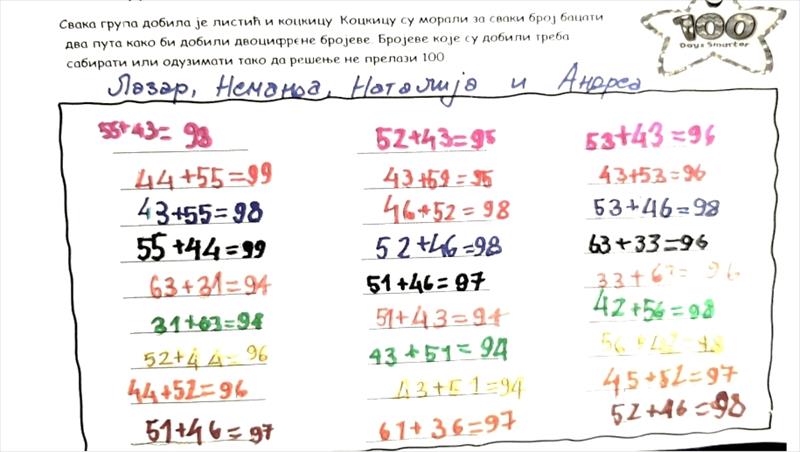 Свака група добила је листић и коцкицу. Коцкицу су морали за сваки број бацати
два пута како би добили двоцифрене бројеве. Бројеве које су добили треба
сабирати или одузимати тако да решење не прелази 100.
100
Days Smarter
Лазар, Немања, Наталија и Андреа
55+43=98 52+43=95 53+43=96
44+55=99 43+52=95 43+53=96
43+55=98 46+52=98 53+46=98
55+44=99 52+46=98 63+33=96
63+31=94 51+46=97 33+63=96
31+63=94 51+43=94 42+56=98
52+44=96 43+51=94 56+42=98
44+52=96 43+51=94 45+52=97
51+46=97 61+36=97 52+46=98